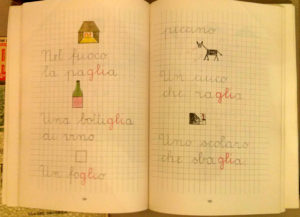 Nel fuoco
la paglia
Una bottiglia
di vino
Un foglio
piccino
Un ciuco
che raglia
Uno scolaro
che sbaglia